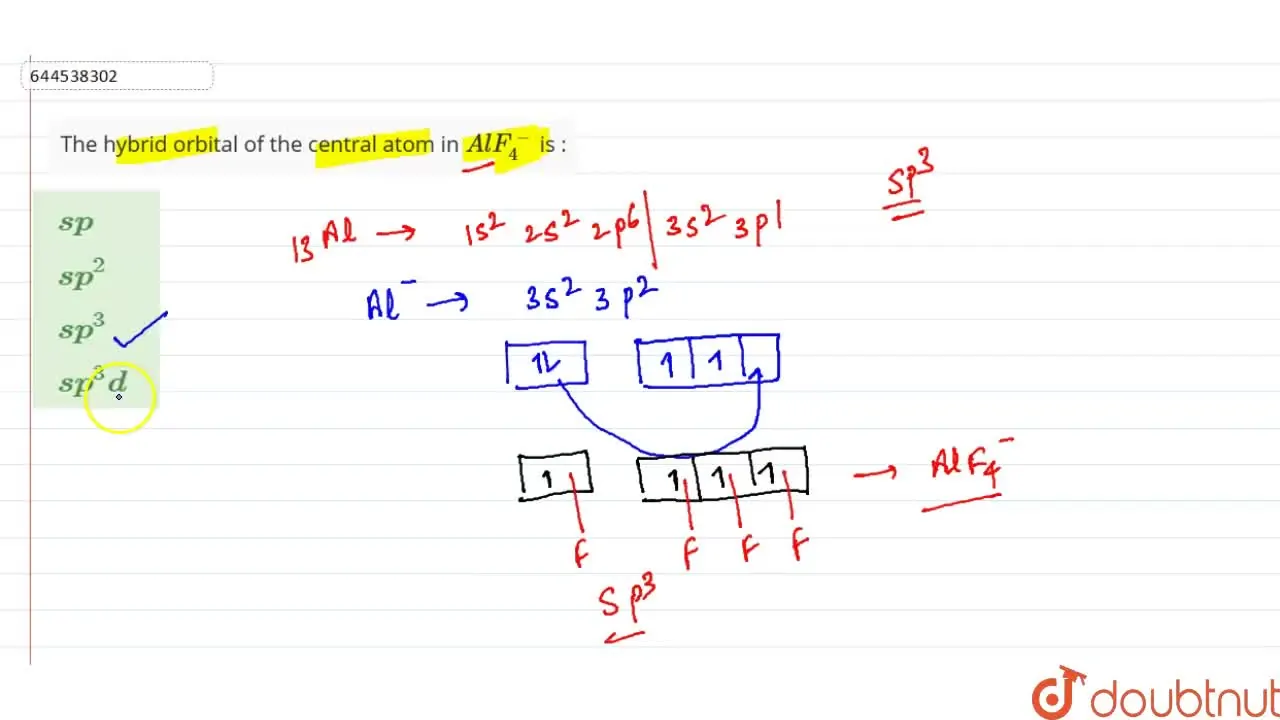 644538302
The hybrid orbital of the central atom in AlF₄⁻ is :
sp
sp²
sp³
sp³d
sp³
₁₃Al → 1s² 2s² 2p⁶ | 3s² 3p¹
Al⁻ → 3s² 3p²
1l 1 1
1 1 1 1 → AlF₄⁻
F F F F
sp³
doubtnut